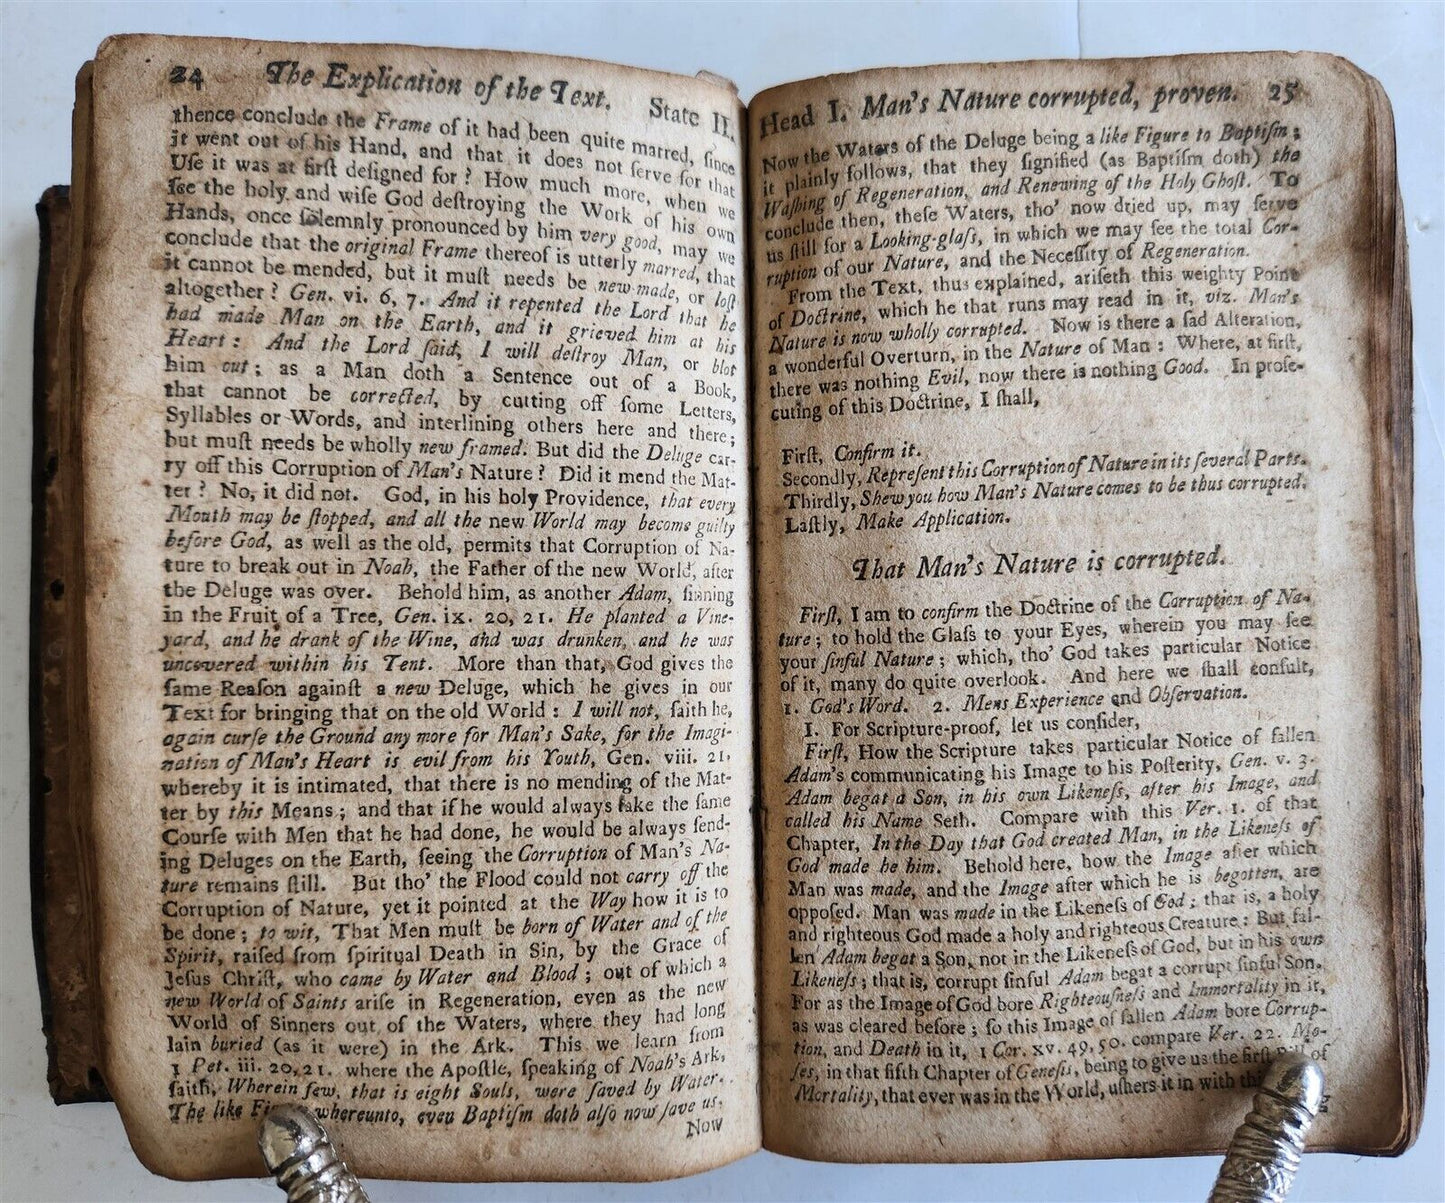 24 The Explication of the Text. State II.
thence conclude the Frame of it had been quite marred, ſince
it went out of his Hand, and that it does not ſerve for that
Uſe it was at firſt deſigned for? How much more, when we
ſee the holy and wiſe God deſtroying the Work of his own
Hands, once ſolemnly pronounced by him very good, may we
conclude that the original Frame thereof is utterly marred, that
it cannot be mended, but it muſt needs be new-made, or loſt
altogether? Gen. vi. 6, 7. And it repented the Lord that he
had made Man on the Earth, and it grieved him at his
Heart: And the Lord ſaid, I will deſtroy Man, or blot
him out; as a Man doth a Sentence out of a Book,
that cannot be corrected, by cutting off ſome Letters,
Syllables or Words, and interlining others here and there;
but muſt needs be wholly new framed. But did the Deluge car-
ry off this Corruption of Man's Nature? Did it mend the Mat-
ter? No, it did not. God, in his holy Providence, that every
Mouth may be ſtopped, and all the new World may become guilty
before God, as well as the old, permits that Corruption of Na-
ture to break out in Noah, the Father of the new World, after
the Deluge was over. Behold him, as another Adam, ſinning
in the Fruit of a Tree, Gen. ix. 20, 21. He planted a Vine-
yard, and he drank of the Wine, and was drunken, and he was
uncovered within his Tent. More than that, God gives the
ſame Reaſon againſt a new Deluge, which he gives in our
Text for bringing that on the old World: I will not, ſaith he,
again curſe the Ground any more for Man's Sake, for the Imagi-
nation of Man's Heart is evil from his Youth, Gen. viii. 21.
whereby it is intimated, that there is no mending of the Mat-
ter by this Means; and that if he would always take the ſame
Courſe with Men that he had done, he would be always ſend-
ing Deluges on the Earth, ſeeing the Corruption of Man's Na-
ture remains ſtill. But tho' the Flood could not carry off the
Corruption of Nature, yet it pointed at the Way how it is to
be done; to wit, That Men muſt be born of Water and of the
Spirit, raiſed from ſpiritual Death in Sin, by the Grace of
Jeſus Chriſt, who came by Water and Blood; out of which a
new World of Saints ariſe in Regeneration, even as the new
World of Sinners out of the Waters, where they had long
lain buried (as it were) in the Ark. This we learn from
1 Pet. iii. 20, 21. where the Apoſtle, ſpeaking of Noah's Ark,
ſaith, Wherein few, that is eight Souls, were ſaved by Water.
The like whereunto, even Baptiſm doth alſo now ſave us.
Now
Head I. Man's Nature corrupted, proven. 25
Now the Waters of the Deluge being a like Figure to Baptiſm;
it plainly follows, that they ſignified (as Baptiſm doth) the
Waſhing of Regeneration, and Renewing of the Holy Ghoſt. To
conclude then, theſe Waters, tho' now dried up, may ſerve
us ſtill for a Looking-glaſs, in which we may ſee the total Cor-
ruption of our Nature, and the Neceſſity of Regeneration.
From the Text, thus explained, ariſeth this weighty Point
of Doctrine, which he that runs may read in it, viz. Man's
Nature is now wholly corrupted. Now is there a ſad Alteration,
a wonderful Overturn, in the Nature of Man: Where, at firſt,
there was nothing Evil, now there is nothing Good. In proſe-
cuting of this Doctrine, I ſhall,
Firſt, Confirm it.
Secondly, Repreſent this Corruption of Nature in its ſeveral Parts.
Thirdly, Shew you how Man's Nature comes to be thus corrupted.
Laſtly, Make Application.
That Man's Nature is corrupted.
Firſt, I am to confirm the Doctrine of the Corruption of Na-
ture; to hold the Glaſs to your Eyes, wherein you may ſee
your ſinful Nature; which, tho' God takes particular Notice
of it, many do quite overlook. And here we ſhall conſult,
1. God's Word. 2. Mens Experience and Obſervation.
I. For Scripture-proof, let us conſider,
Firſt, How the Scripture takes particular Notice of fallen
Adam's communicating his Image to his Poſterity, Gen. v. 3.
Adam begat a Son, in his own Likeneſs, after his Image, and
called his Name Seth. Compare with this Ver. 1. of that
Chapter, In the Day that God created Man, in the Likeneſs of
God made he him. Behold here, how the Image after which
Man was made, and the Image after which he is begotten, are
oppoſed. Man was made in the Likeneſs of God; that is, a holy
and righteous God made a holy and righteous Creature: But fal-
len Adam begat a Son, not in the Likeneſs of God, but in his own
Likeneſs; that is, corrupt ſinful Adam begat a corrupt ſinful Son.
For as the Image of God bore Righteouſneſs and Immortality in it,
as was cleared before; ſo this Image of fallen Adam bore Corrup-
tion, and Death in it, 1 Cor. xv. 49, 50. compare Ver. 22. Mo-
ſes, in that fifth Chapter of Geneſis, being to give us the firſt Bill of
Mortality, that ever was in the World, uſhers it in with